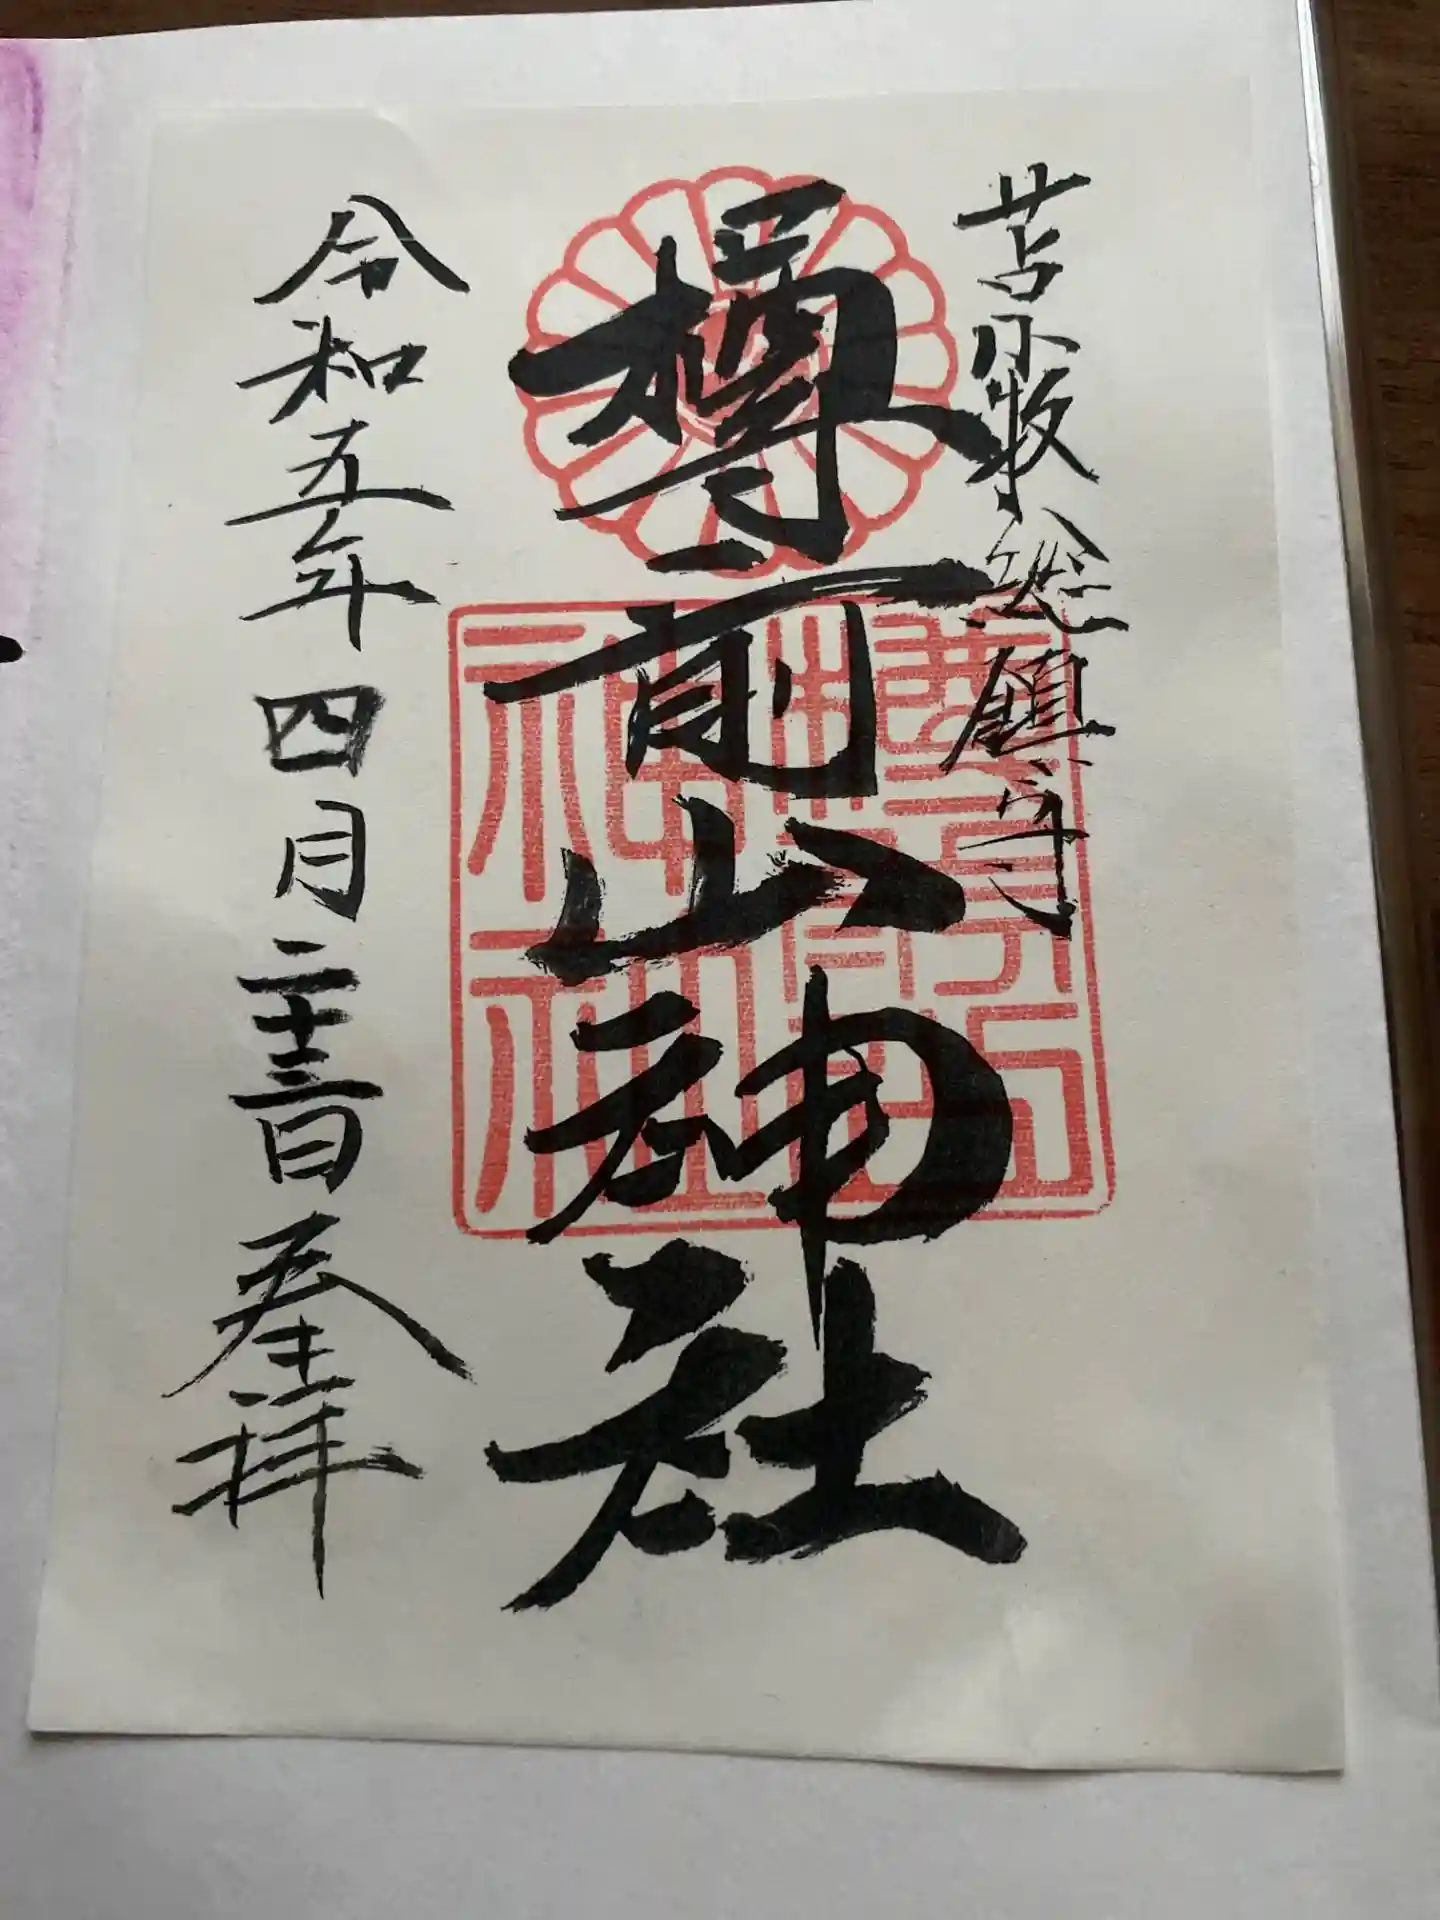 苫小牧総鎮守
樽前山神社
令和五年四月二十三日参拝